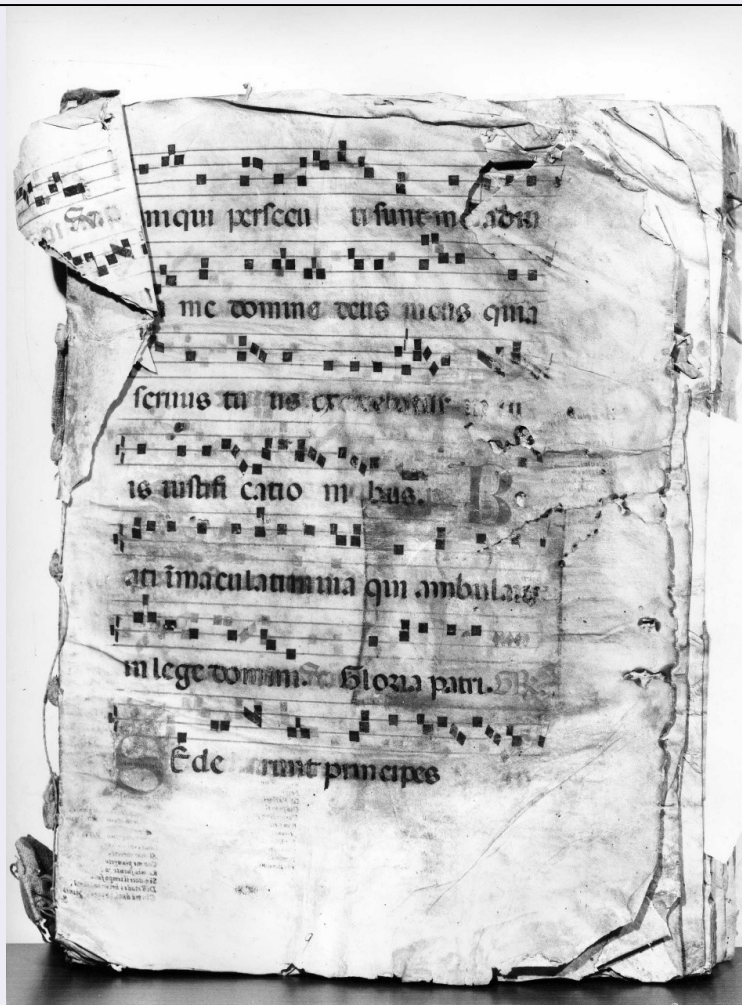 niqui persecu ti sunt me adiu
me domine deus meus quia
seruus tu us exercebatur
is iustifi catio ni bus. B
ati īmaculati in uia qui ambulant
in lege domini. Gloria patri.
SEde runt principes